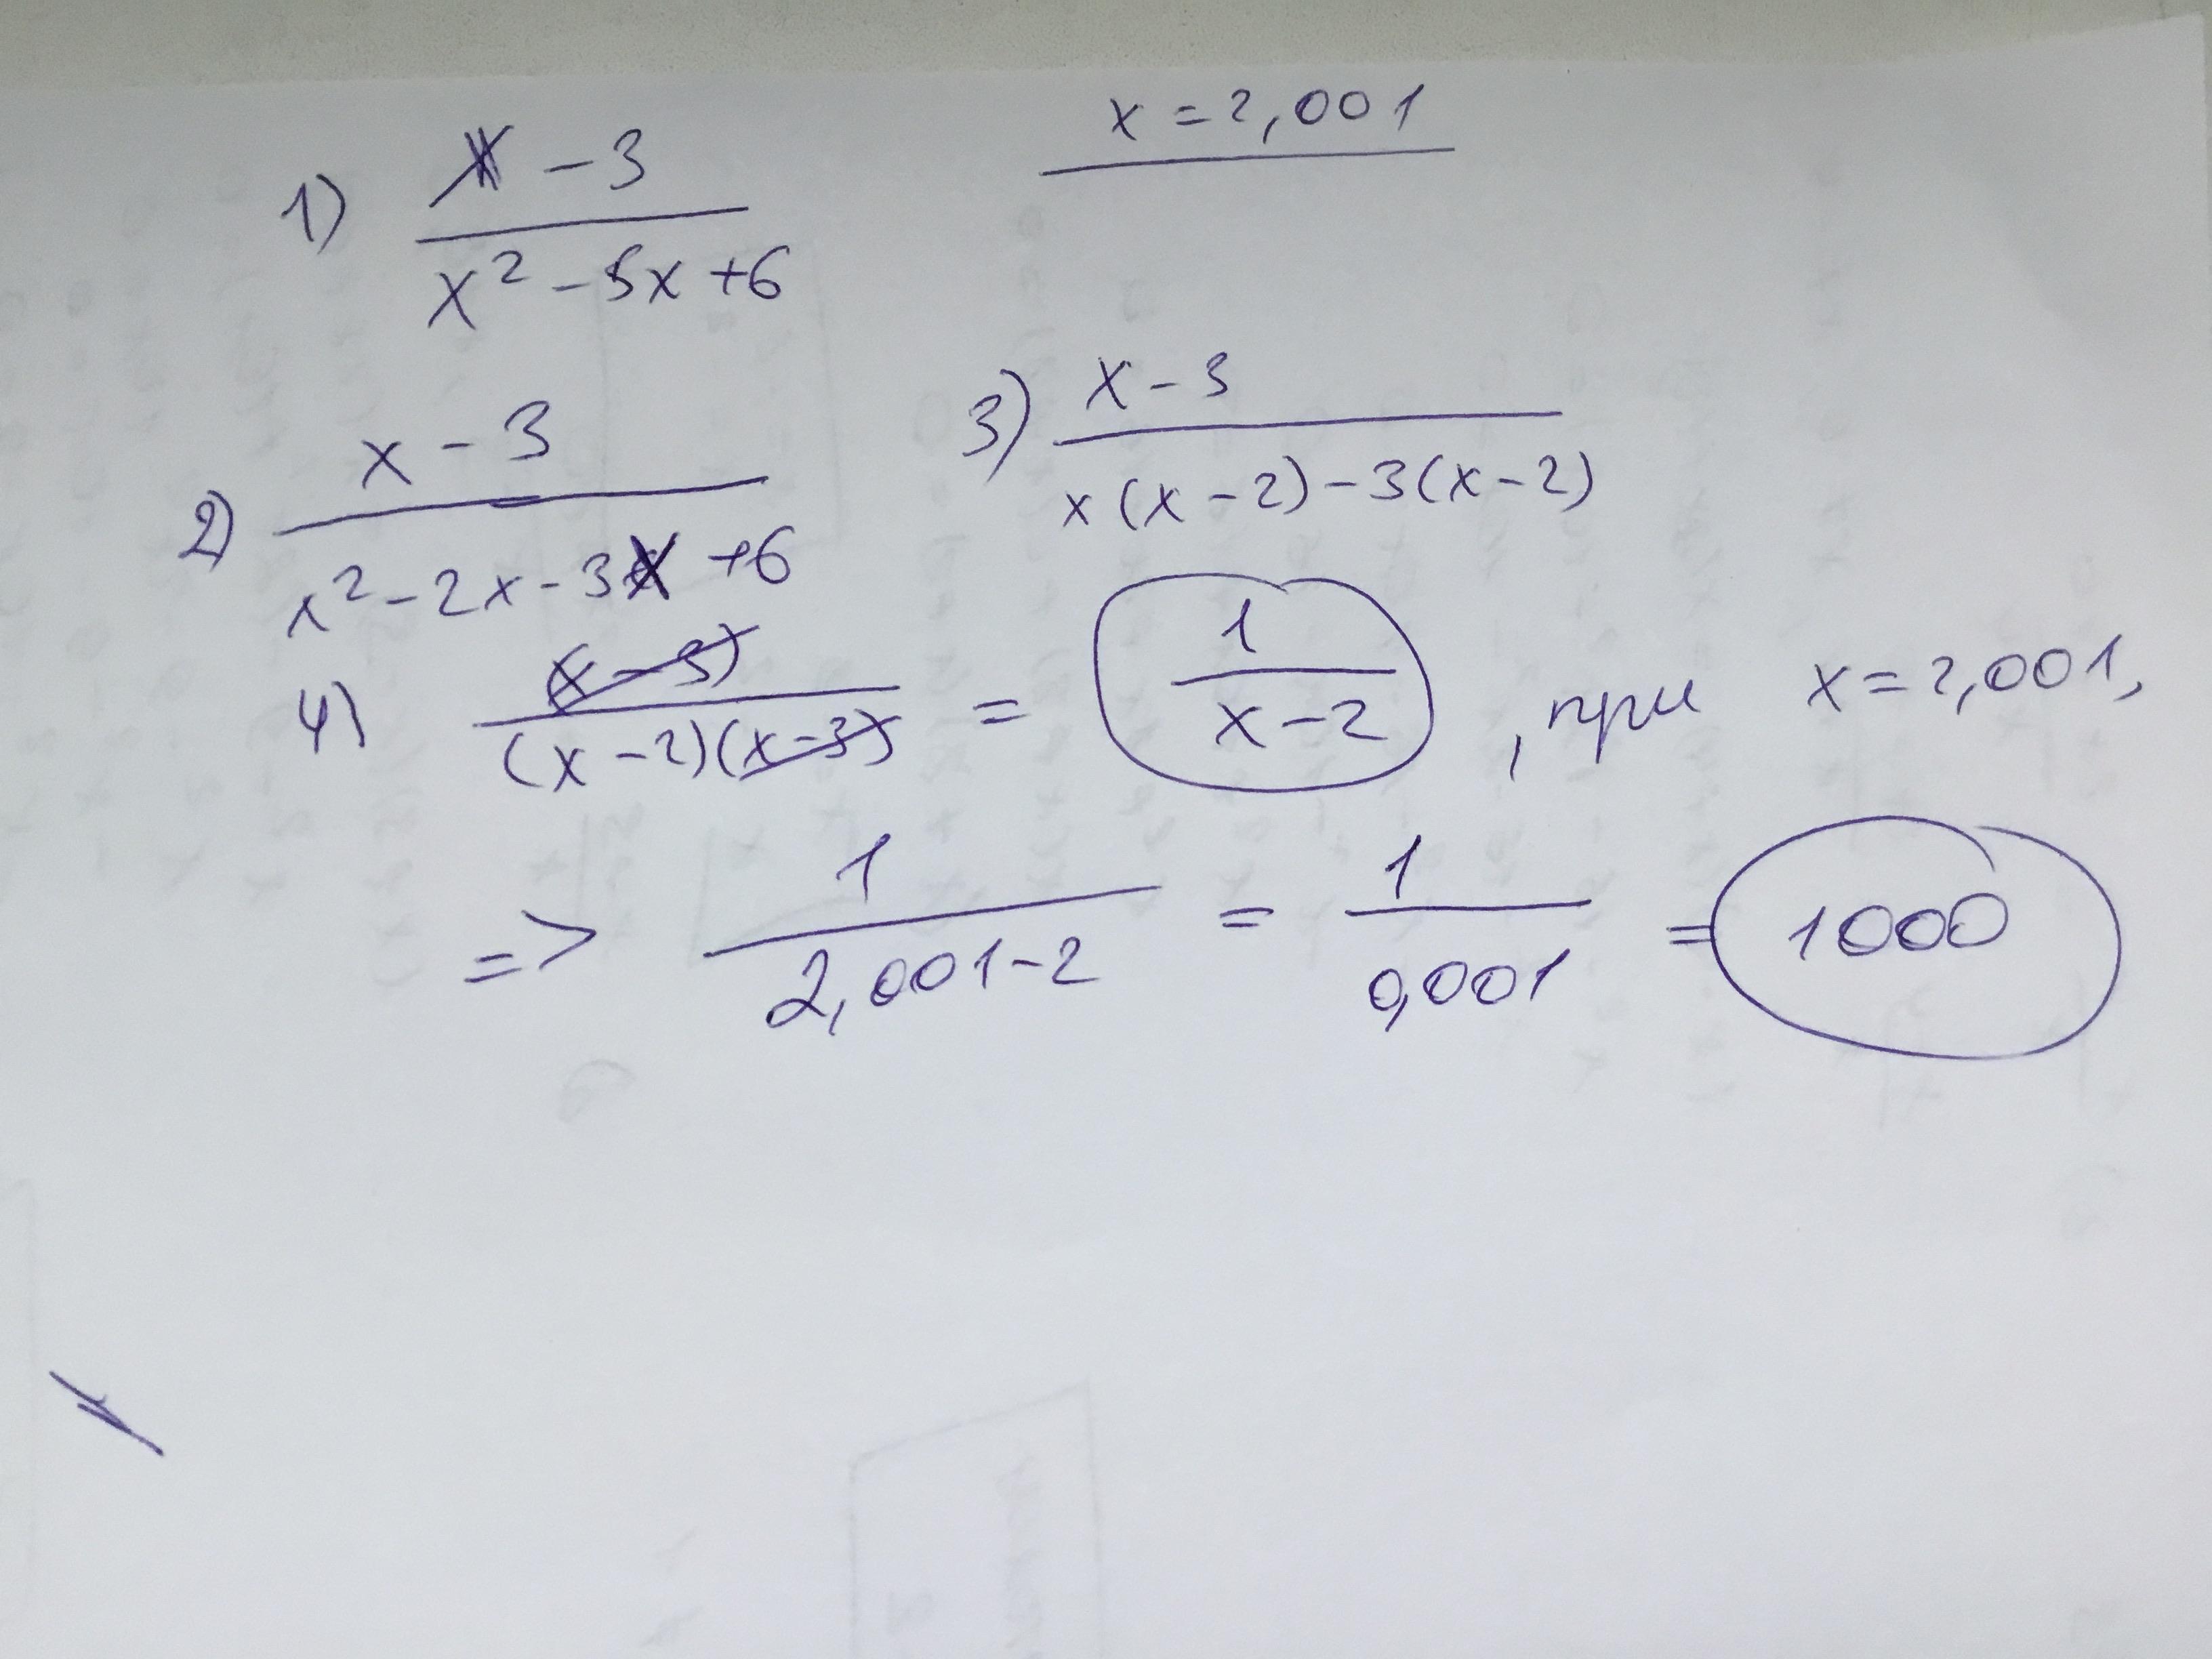 x = 2,001
1) (x - 3) / (x² - 5x + 6)
2) (x - 3) / (x² - 2x - 3x + 6)
3) (x - 3) / (x(x - 2) - 3(x - 2))
4) (x - 3) / ((x - 2)(x - 3)) = 1 / (x - 2) , при x = 2,001,
=> 1 / (2,001 - 2) = 1 / 0,001 = 1000